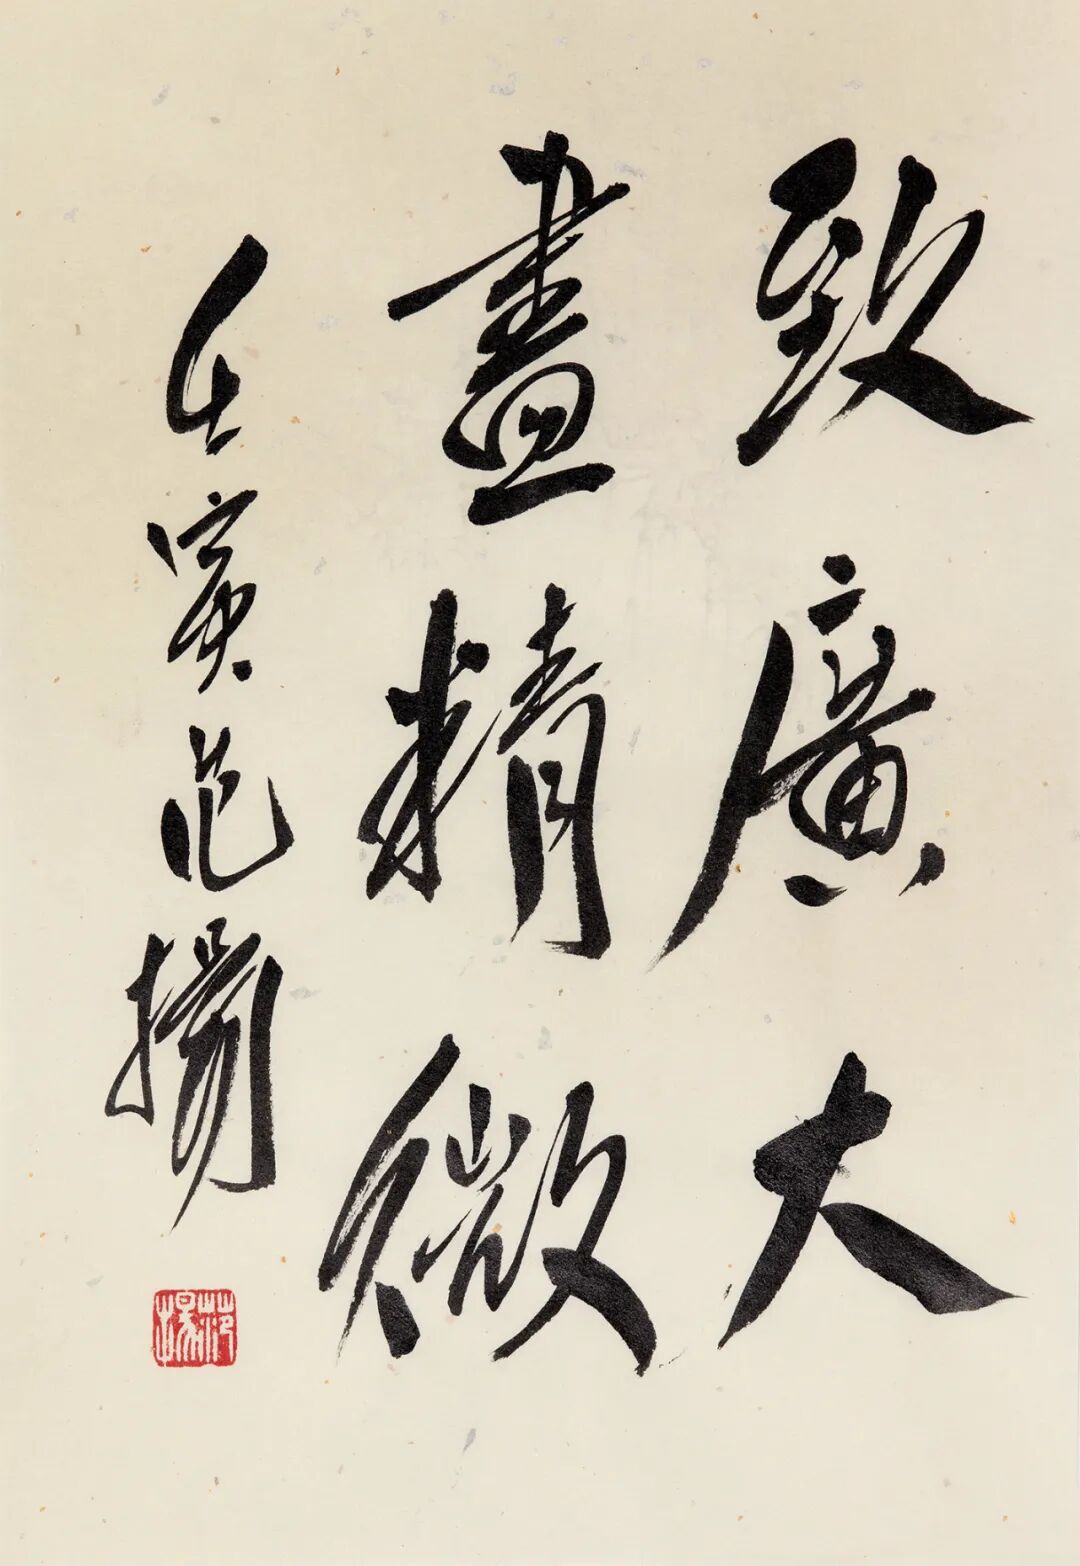 致廣大
盡精微
壬寅范揚
范揚